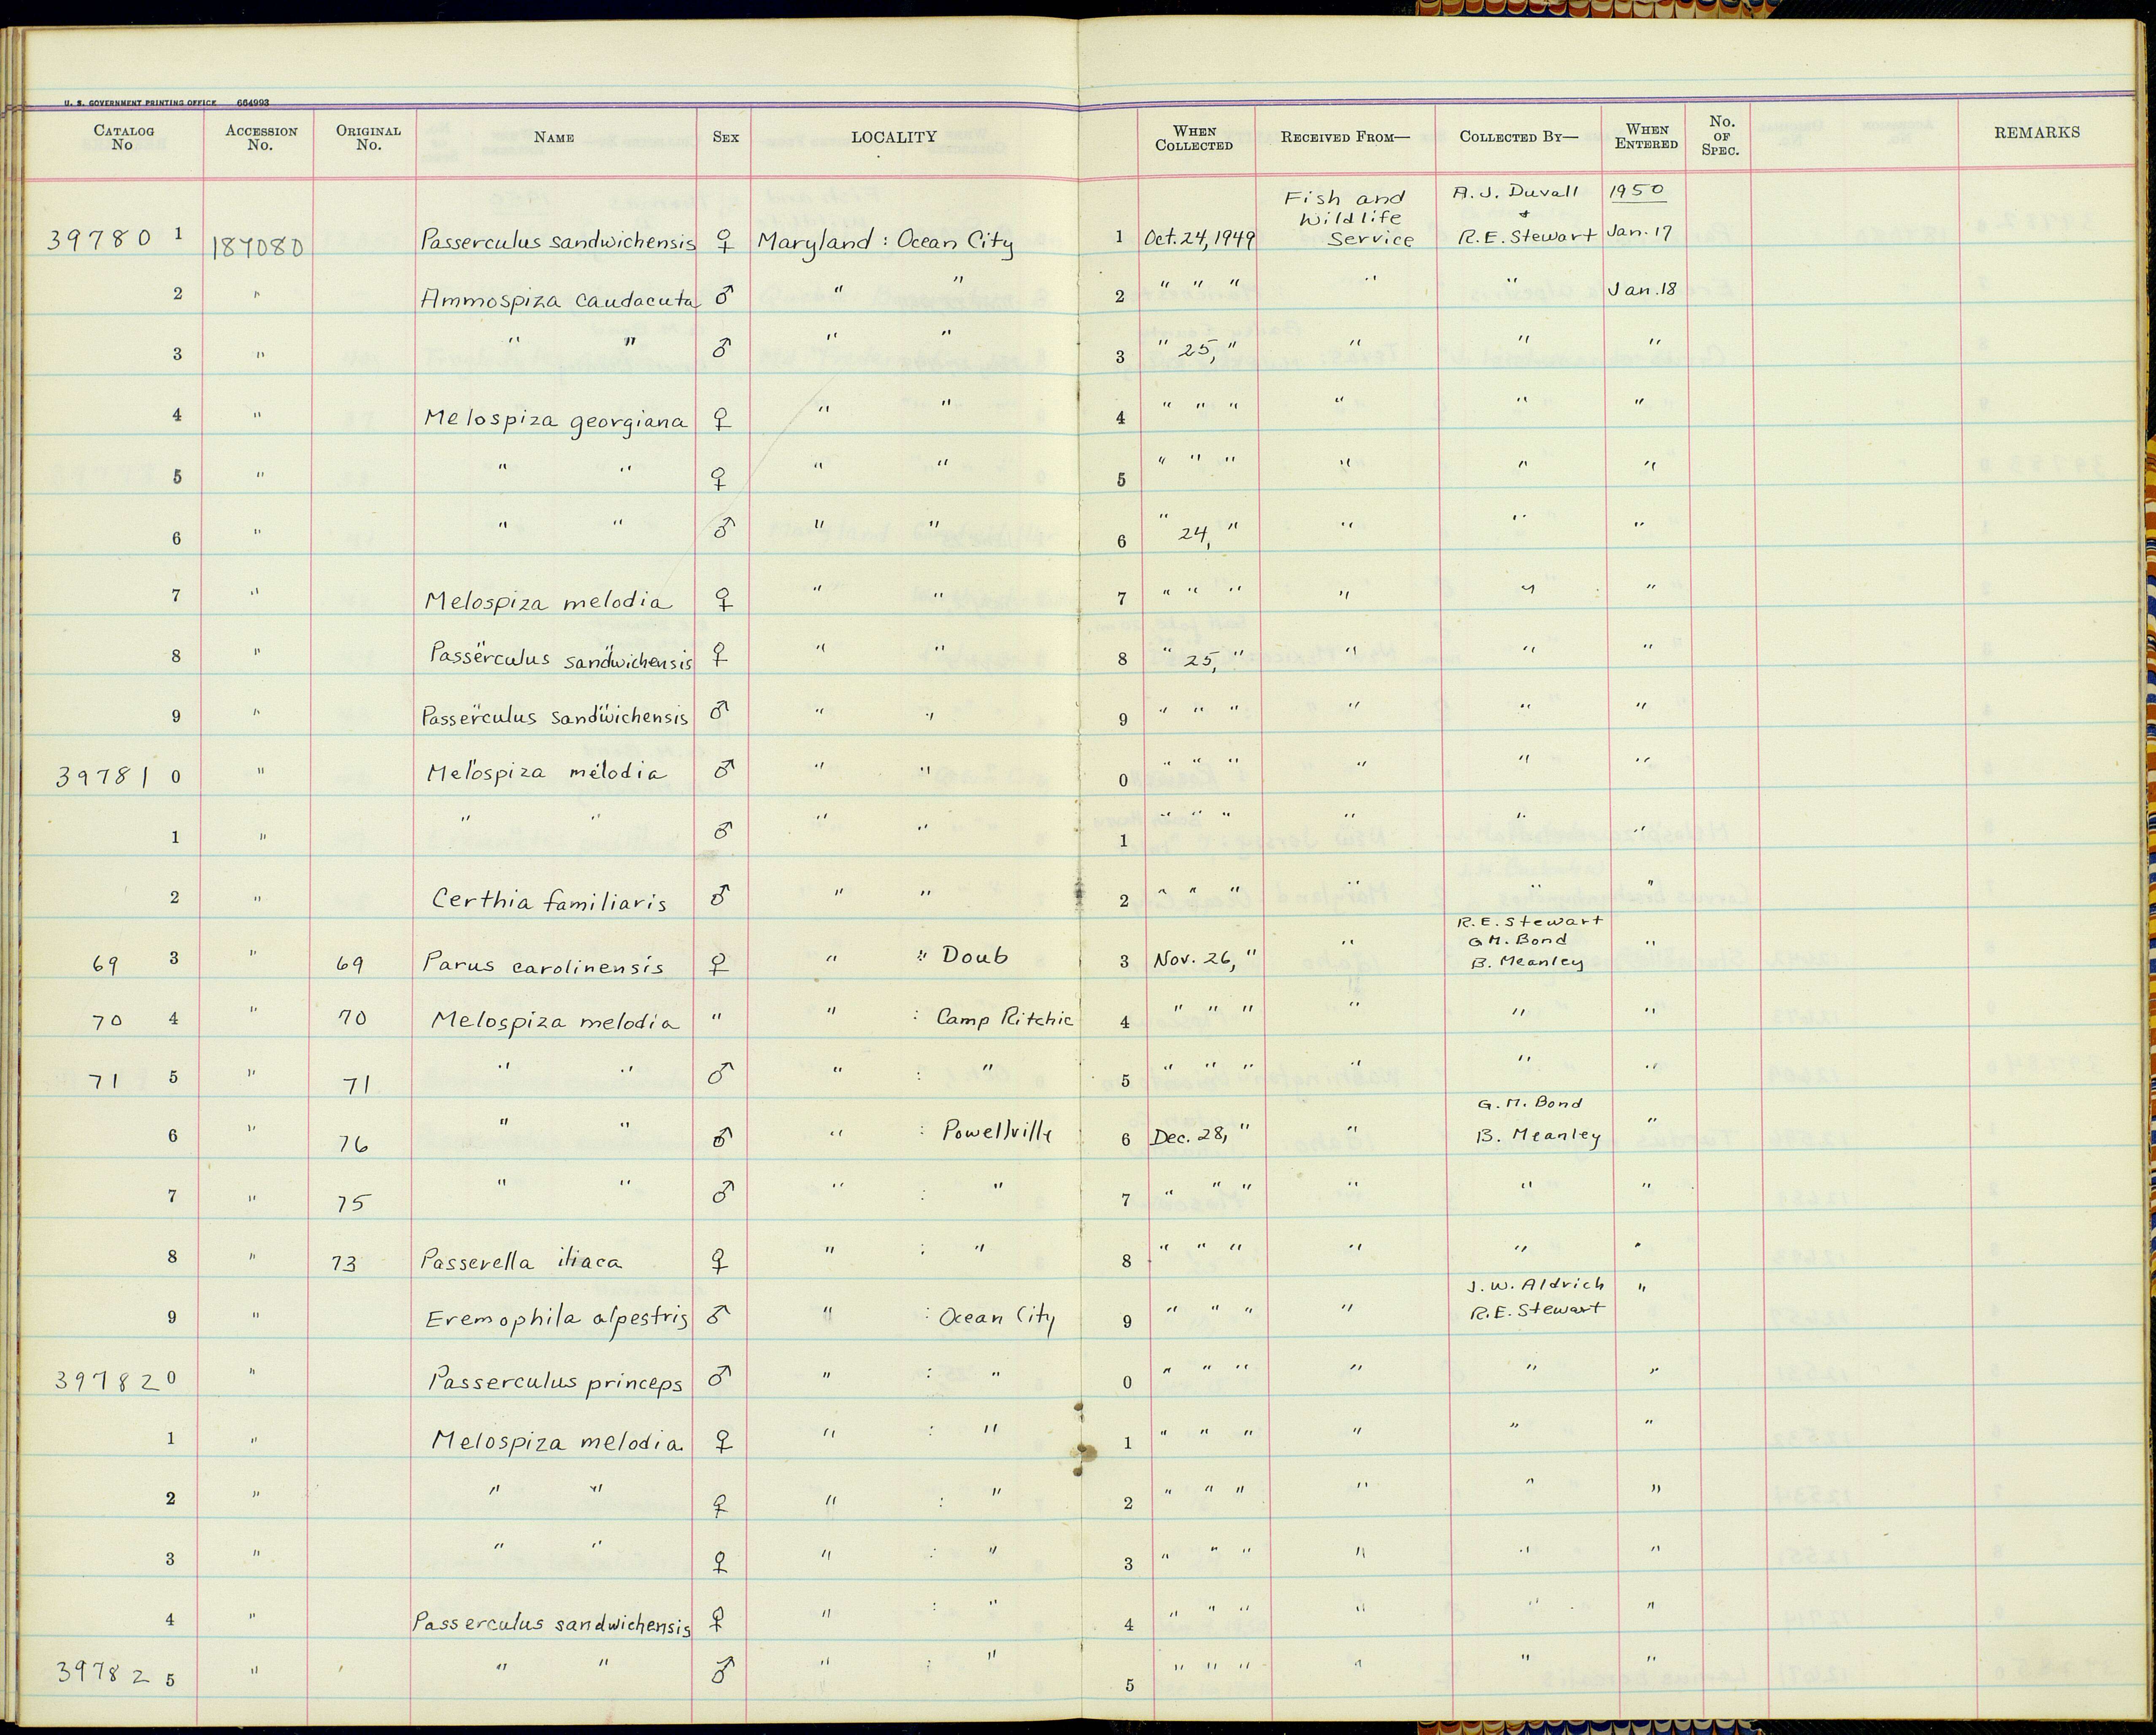 U. S. GOVERNMENT PRINTING OFFICE 664993
CATALOG No ACCESSION No. ORIGINAL No. NAME SEX LOCALITY WHEN COLLECTED RECEIVED FROM— COLLECTED BY— WHEN ENTERED No. OF SPEC. REMARKS
39780 1 187080 Passerculus sandwichensis ♀ Maryland : Ocean City 1 Oct. 24, 1949 Fish and Wildlife Service A. J. Duvall + R. E. Stewart 1950 Jan. 17
2 " Ammospiza caudacuta ♂ " " 2 " " " " " Jan. 18
3 " " " ♂ " " 3 " 25, " " " "
4 " Melospiza georgiana ♀ " " 4 " " " " " "
5 " " " ♀ " " 5 " " " " " "
6 " " " ♂ " " 6 " 24, " " " "
7 " Melospiza melodia ♀ " " 7 " " " " " "
8 " Passerculus sandwichensis ♀ " " 8 " 25, " " " "
9 " Passerculus sandwichensis ♂ " " 9 " " " " " "
39781 0 " Melospiza melodia ♂ " " 0 " " " " " "
1 " " " ♂ " " 1 " " " " " "
2 " Certhia familiaris ♂ " " 2 " " " " " "
69 3 " 69 Parus carolinensis ♀ " : Doub 3 Nov. 26, " " R. E. Stewart G. M. Bond B. Meanley "
70 4 " 70 Melospiza melodia " " : Camp Ritchie 4 " " " " " "
71 5 " 71 " " ♂ " : " 5 " " " " " "
6 " 76 " " ♂ " : Powellville 6 Dec. 28, " " G. M. Bond B. Meanley "
7 " 75 " " ♂ " : " 7 " " " " " "
8 " 73 Passerella iliaca ♀ " : " 8 " " " " " "
9 " Eremophila alpestris ♂ " : Ocean City 9 " " " " J. W. Aldrich R. E. Stewart "
39782 0 " Passerculus princeps ♂ " : " 0 " " " " " "
1 " Melospiza melodia ♀ " : " 1 " " " " " "
2 " " " ♀ " : " 2 " " " " " "
3 " " " ♀ " : " 3 " " " " " "
4 " Passerculus sandwichensis ♀ " : " 4 " " " " " "
39782 5 " " " ♂ " : " 5 " " " " " "